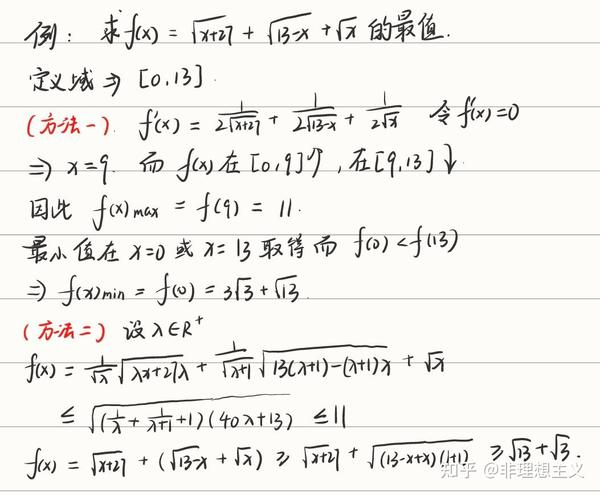 例: 求f(x) = √(x+27) + √(13-x) + √x 的最值.
定义域 ⇒ [0,13]
(方法一) f'(x) = 1/(2√(x+27)) + 1/(2√(13-x)) + 1/(2√x) 令f'(x)=0
⇒ x=9. 而 f(x) 在 [0,9]↑, 在[9,13]↓
因此 f(x)max = f(9) = 11.
最小值在 x=0 或 x=13 取得而 f(0)<f(13)
⇒ f(x)min = f(0) = 3√3 + √13.
(方法二) 设 λ∈R⁺
f(x) = 1/√λ √(λx+27λ) + 1/√(λ+1) √(13(λ+1)-(λ+1)x) + √x
≤ √((1/λ + 1/(λ+1) + 1)(40λ+13)) ≤ 11
f(x) = √(x+27) + (√(13-x) + √x) ≥ √(x+27) + √((13-x+x)(1+1)) ≥ √13 + √3.
知乎 @非理想主义